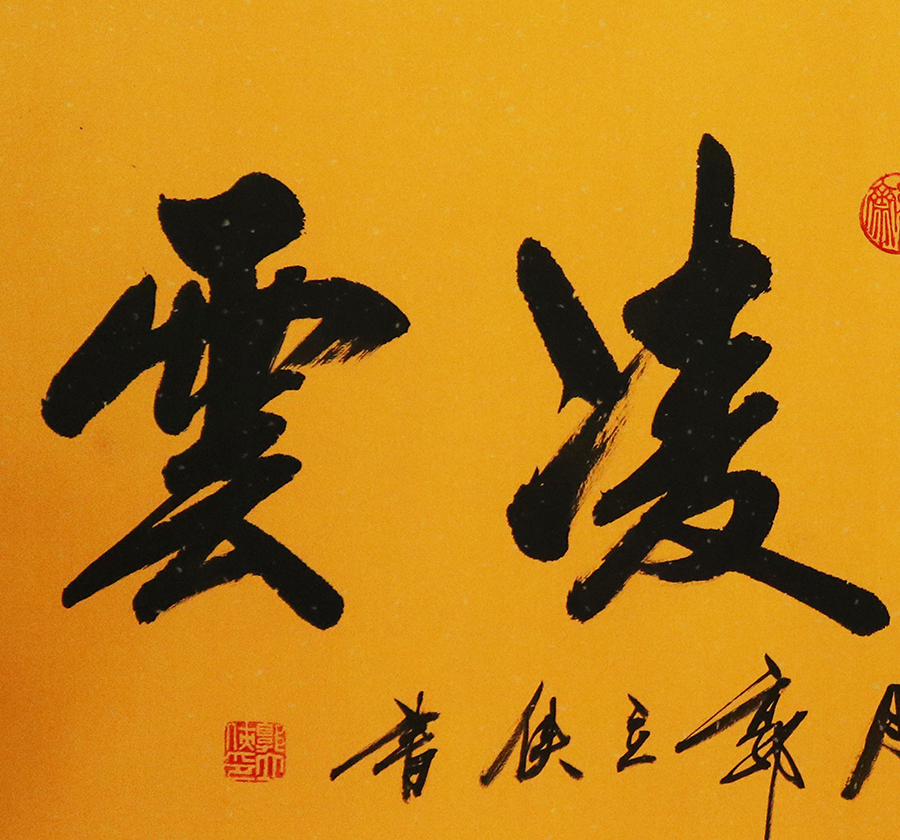 凌雲
郭立侠書
郭立侠印